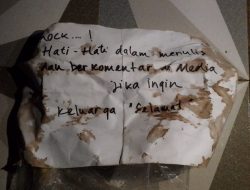 ock...!
Hati-Hati dalam menulis
dan berkomentar di Media
jika Ingin
Keluarga "Selamat"